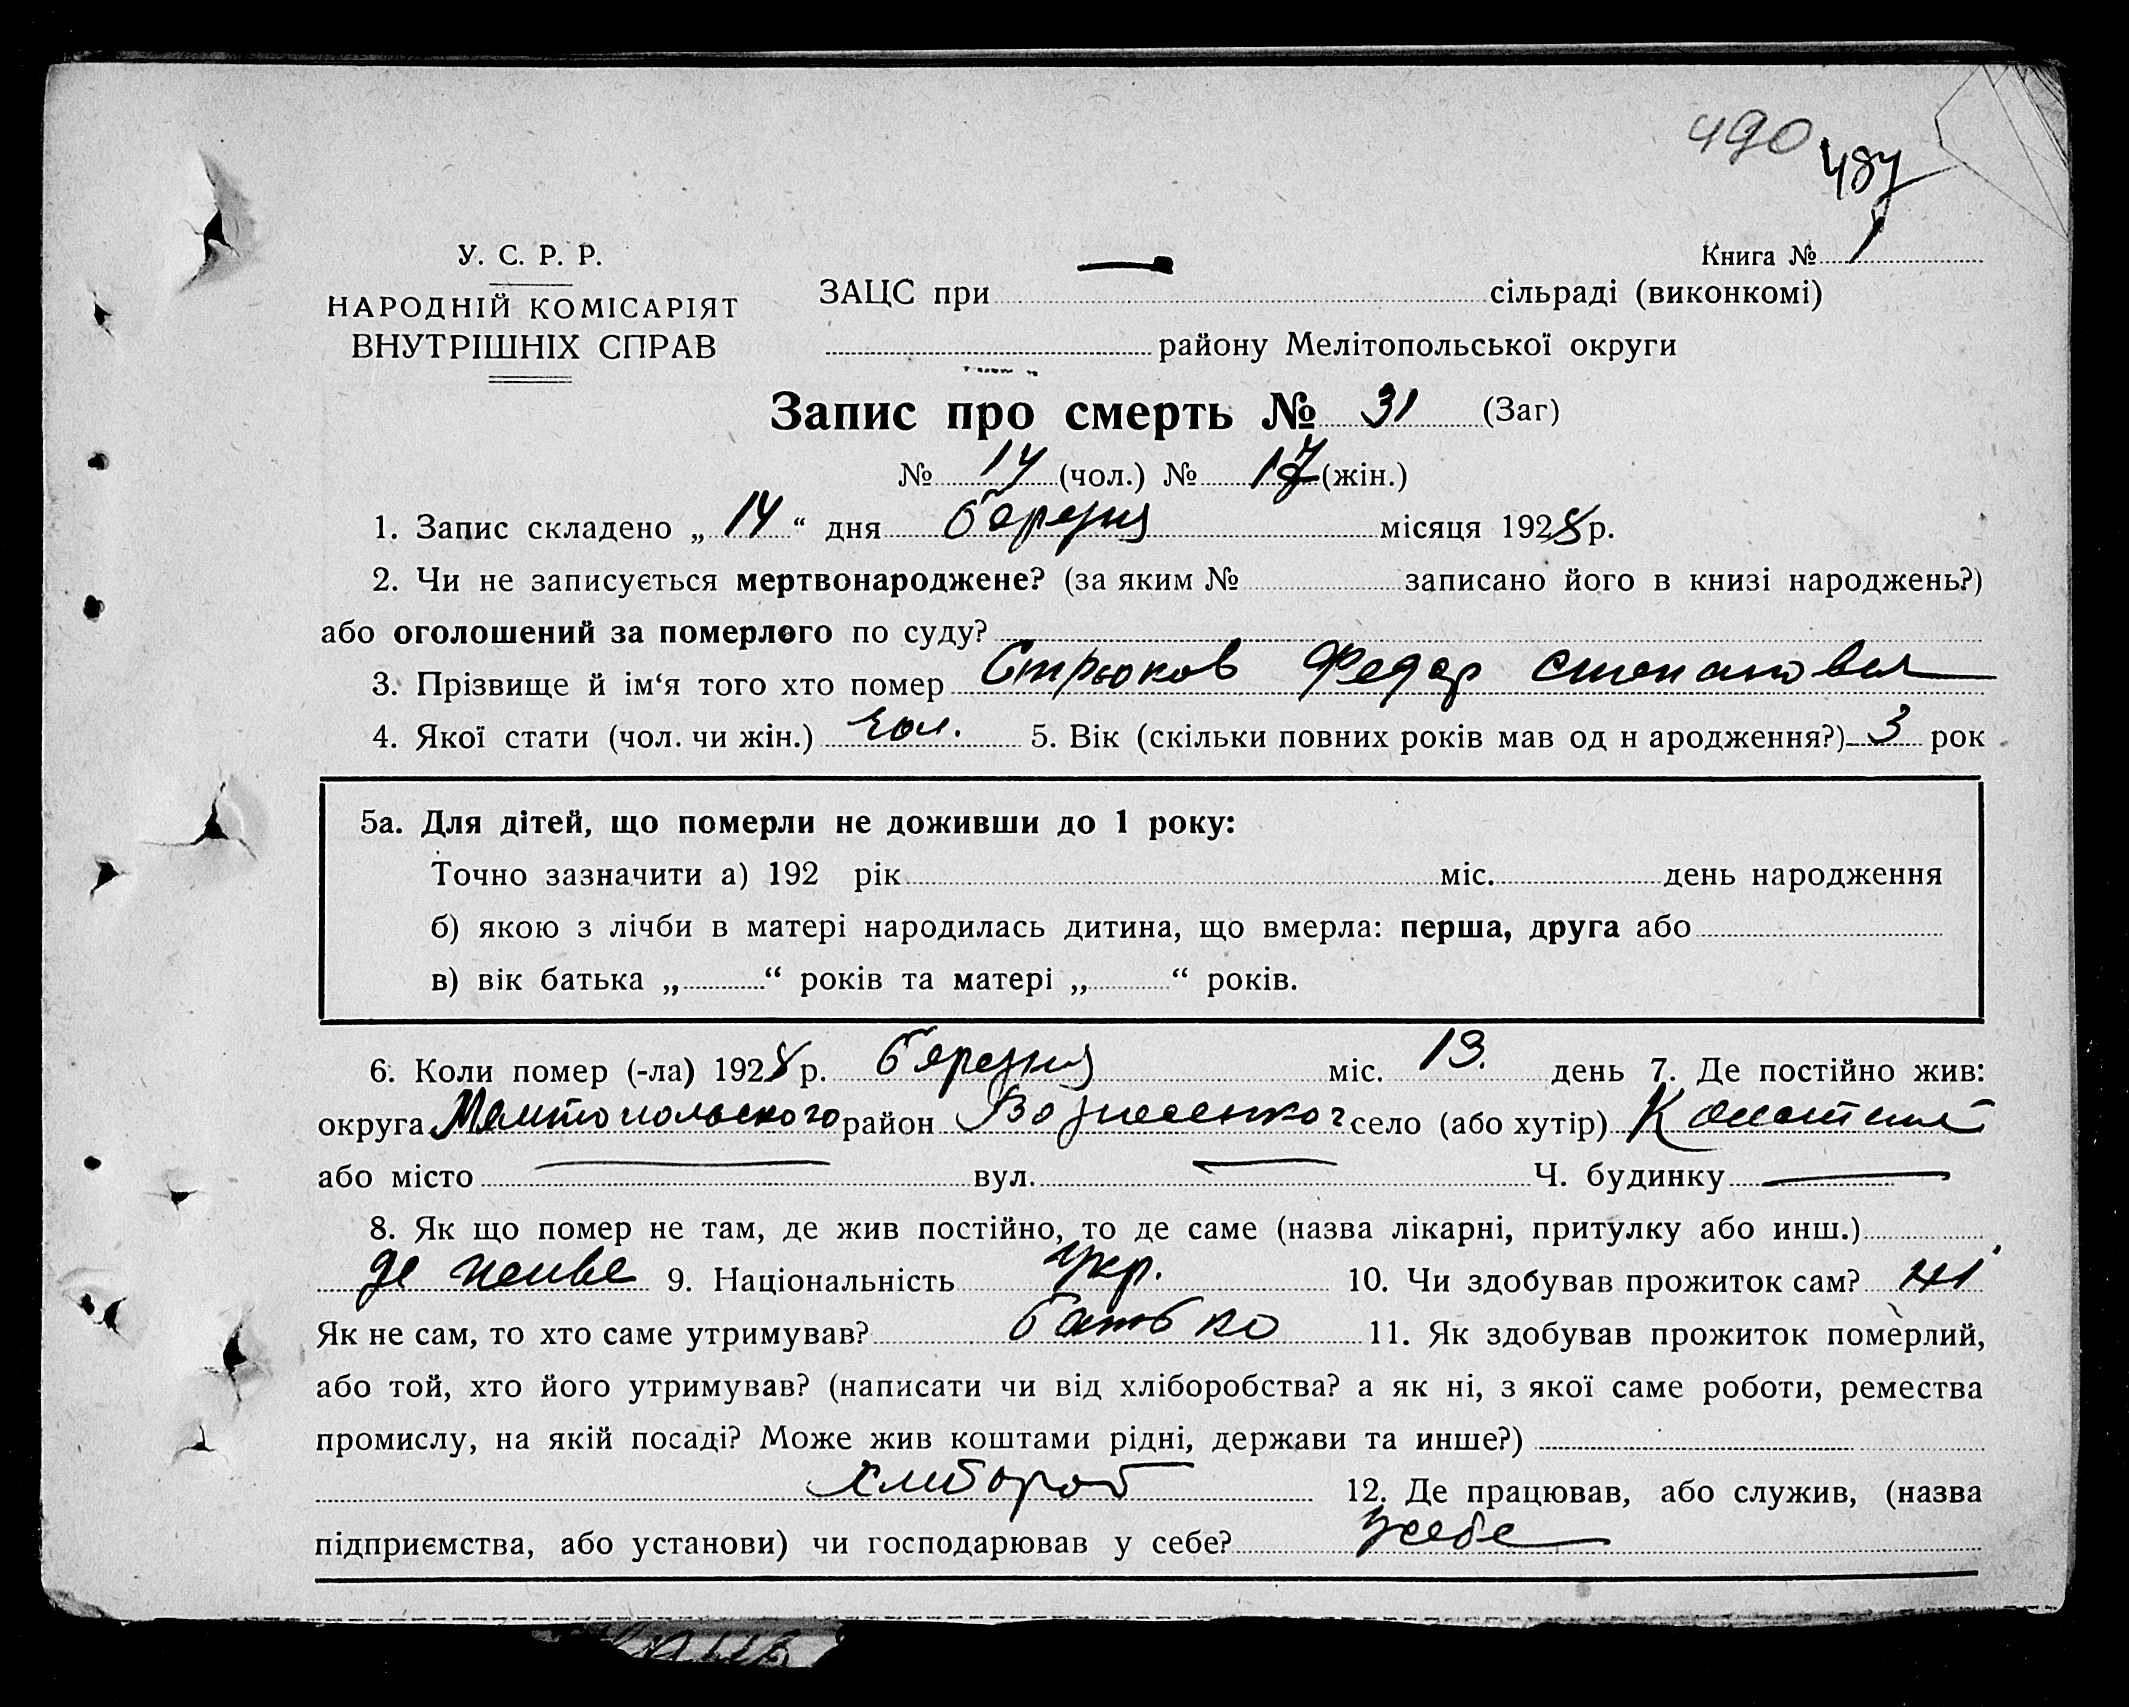 490 487
У. С. Р. Р.
НАРОДНІЙ КОМІСАРІЯТ
ВНУТРІШНІХ СПРАВ
Книга № 1
ЗАЦС при сільраді (виконкомі)
району Мелітопольської округи
Запис про смерть № 31 (Заг)
№ 14 (чол.) № 17 (жін.)
1. Запис складено „14“ дня березня місяця 1928 р.
2. Чи не записується мертвонароджене? (за яким № записано його в книзі народжень?)
або оголошений за померлого по суду?
3. Прізвище й ім‘я того хто помер Стрюков Федар
4. Якої стати (чол. чи жін.) чол. 5. Вік (скільки повних років мав од н ародження?) 3 рок
5а. Для дітей, що померли не доживши до 1 року:
Точно зазначити а) 192 рік міс. день народження
б) якою з лічби в матері народилась дитина, що вмерла: перша, друга або
в) вік батька „ “ років та матері „ “ років.
6. Коли помер (-ла) 1928 р. березня міс. 13. день 7. Де постійно жив:
округа район село (або хутір)
або місто вул. Ч. будинку
8. Як що помер не там, де жив постійно, то де саме (назва лікарні, притулку або инш.)
де живе 9. Національність укр. 10. Чи здобував прожиток сам? ні
Як не сам, то хто саме утримував? батько 11. Як здобував прожиток померлий,
або той, хто його утримував? (написати чи від хліборобства? а як ні, з якої саме роботи, ремества
промислу, на якій посаді? Може жив коштами рідні, держави та инше?)
хлібороб 12. Де працював, або служив, (назва
підприємства, або установи) чи господарював у себе? у себе